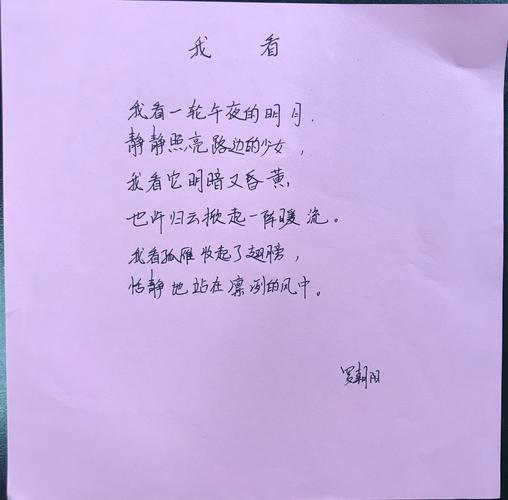 我 看
我看一轮午夜的明月，
静静照亮路边的少女，
我看它明暗又昏黄，
也许归云掀起一阵暖流。
我看孤雁收起了翅膀，
恬静地站在凛冽的风中。
罗朝阳